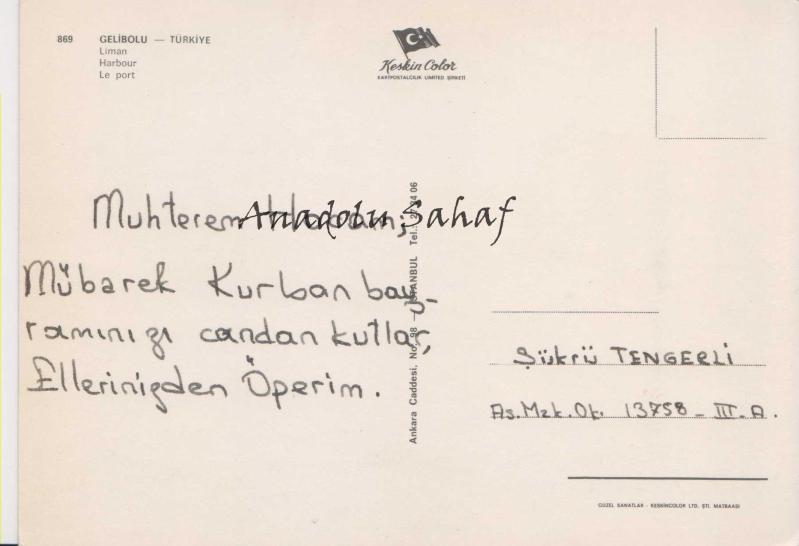 869 GELİBOLU — TÜRKİYE
Liman
Harbour
Le port
Keskin Color
KARTPOSTALCILIK LIMITED ŞİRKETİ
Muhterem
Anadolu Sahaf
Mübarek Kurban bay-
ramınızı candan kutlar,
Ellerinizden Öperim.
Ankara Caddesi, No. 98 — İSTANBUL Tel.:
Şükrü TENGERLİ
As. Mzk. Ok. 13758 - III - A.
GÜZEL SANATLAR - KESKİNCOLOR LTD. ŞTİ. MATBAASI